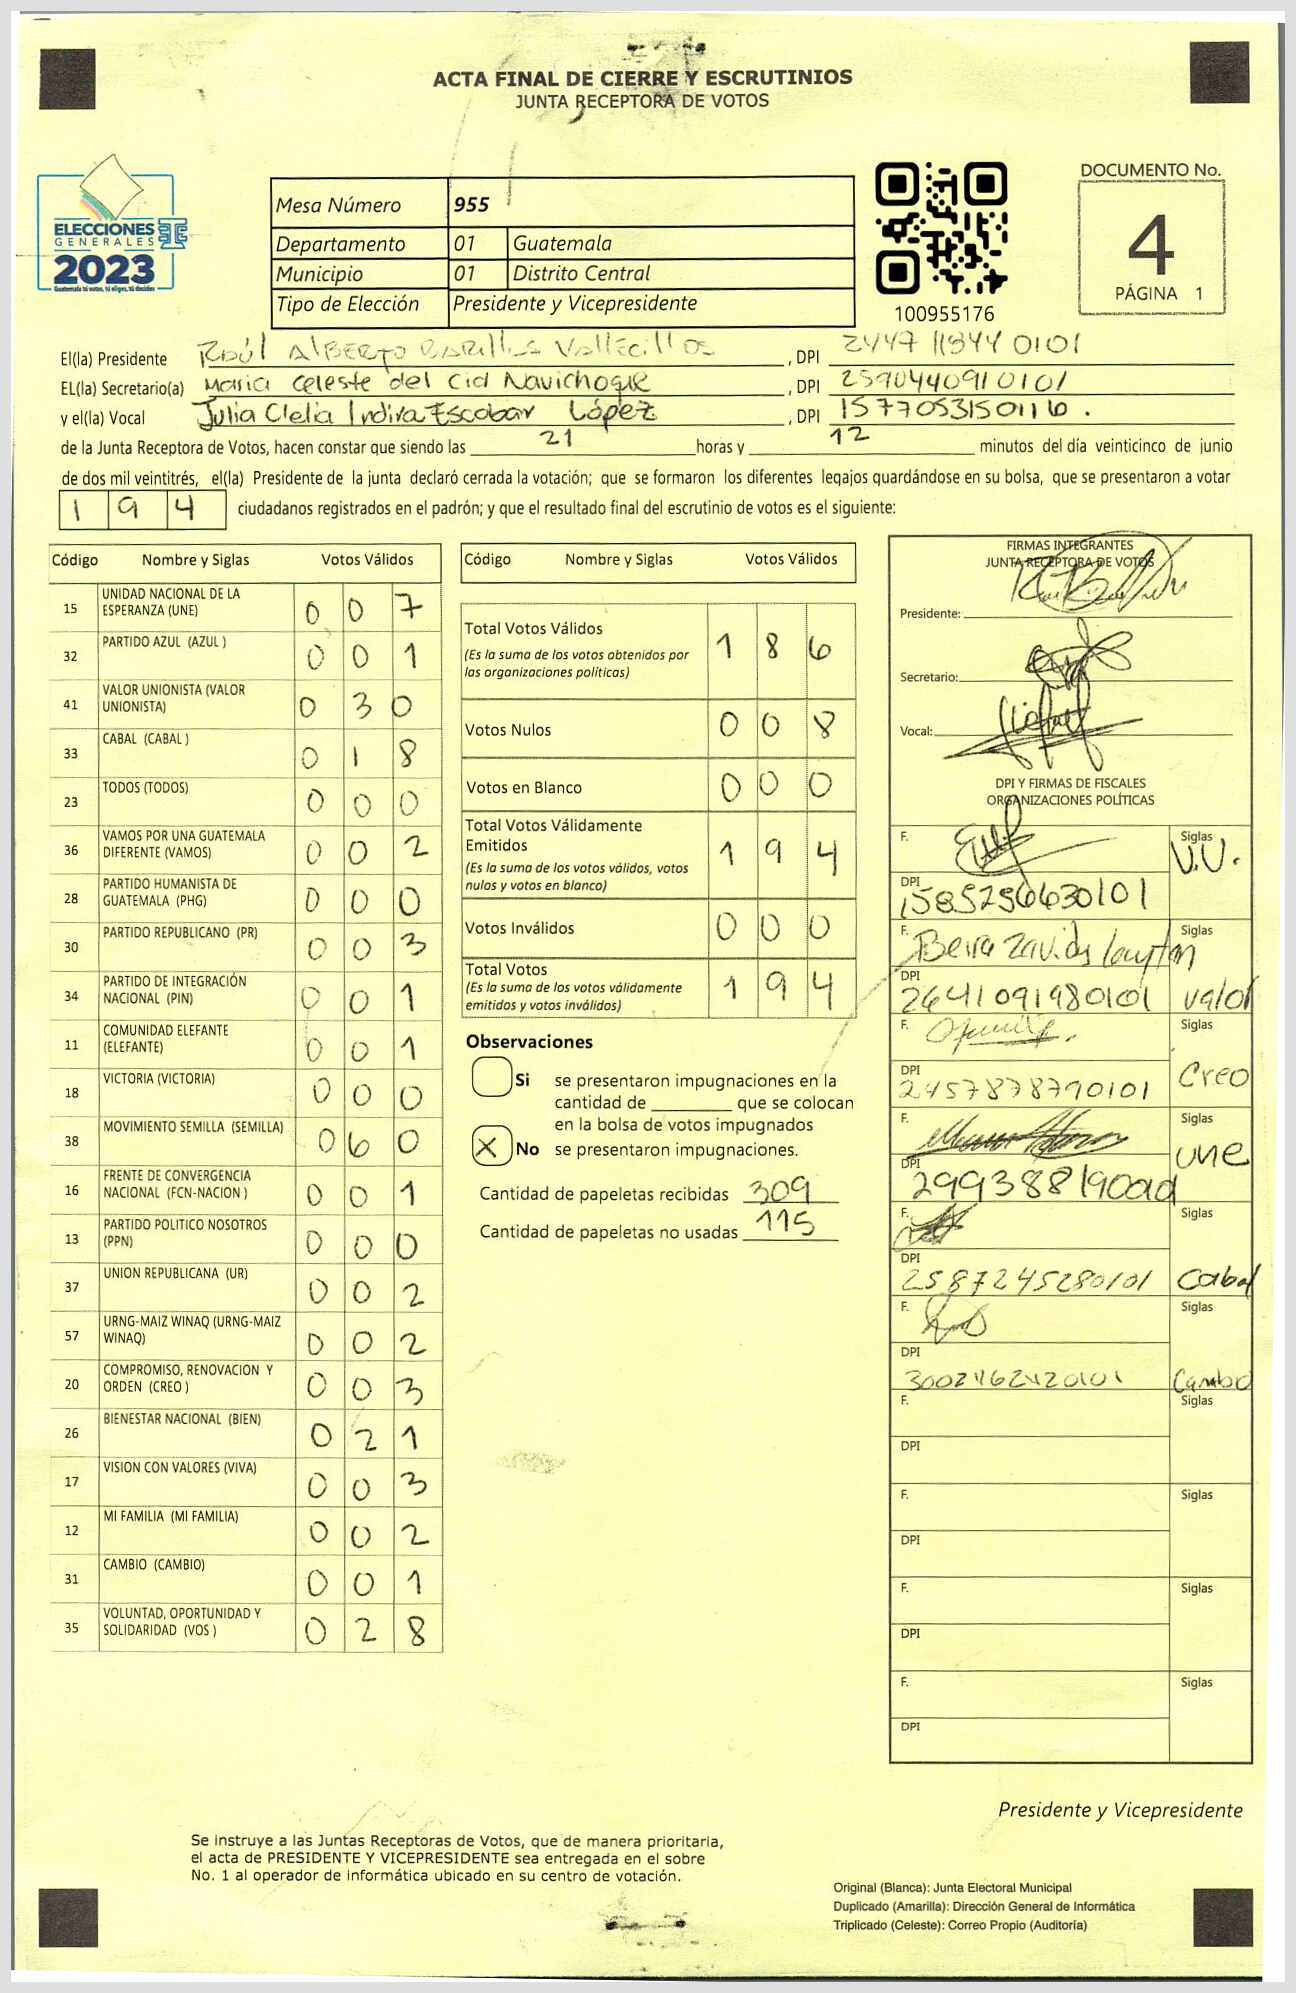 ACTA FINAL DE CIERRE Y ESCRUTINIOS
JUNTA RECEPTORA DE VOTOS
ELECCIONES
GENERALES
2023
Guatemala tú votas, tú eliges, tú decides
Mesa Número 955
Departamento 01 Guatemala
Municipio 01 Distrito Central
Tipo de Elección Presidente y Vicepresidente
100955176
DOCUMENTO No.
4
PÁGINA 1
El(la) Presidente Raúl Alberto Barillas Vallecillos, DPI 2447 11344 0101
EL(la) Secretario(a) Maria Celeste del Cid Navichoque, DPI 2590440910101
y el(la) Vocal Julia Clelia Indira Escobar López, DPI 1577053150116.
de la Junta Receptora de Votos, hacen constar que siendo las 21 horas y 12 minutos del día veinticinco de junio
de dos mil veintitrés, el(la) Presidente de la junta declaró cerrada la votación; que se formaron los diferentes legajos guardándose en su bolsa, que se presentaron a votar
194 ciudadanos registrados en el padrón; y que el resultado final del escrutinio de votos es el siguiente:
Código Nombre y Siglas Votos Válidos
15 UNIDAD NACIONAL DE LA
ESPERANZA (UNE) 0 0 7
32 PARTIDO AZUL (AZUL ) 0 0 1
41 VALOR UNIONISTA (VALOR
UNIONISTA) 0 3 0
33 CABAL (CABAL ) 0 1 8
23 TODOS (TODOS) 0 0 0
36 VAMOS POR UNA GUATEMALA
DIFERENTE (VAMOS) 0 0 2
28 PARTIDO HUMANISTA DE
GUATEMALA (PHG) 0 0 0
30 PARTIDO REPUBLICANO (PR) 0 0 3
34 PARTIDO DE INTEGRACIÓN
NACIONAL (PIN) 0 0 1
11 COMUNIDAD ELEFANTE
(ELEFANTE) 0 0 1
18 VICTORIA (VICTORIA) 0 0 0
38 MOVIMIENTO SEMILLA (SEMILLA) 0 6 0
16 FRENTE DE CONVERGENCIA
NACIONAL (FCN-NACION ) 0 0 1
13 PARTIDO POLITICO NOSOTROS
(PPN) 0 0 0
37 UNION REPUBLICANA (UR) 0 0 2
57 URNG-MAIZ WINAQ (URNG-MAIZ
WINAQ) 0 0 2
20 COMPROMISO, RENOVACION Y
ORDEN (CREO ) 0 0 3
26 BIENESTAR NACIONAL (BIEN) 0 2 1
17 VISION CON VALORES (VIVA) 0 0 3
12 MI FAMILIA (MI FAMILIA) 0 0 2
31 CAMBIO (CAMBIO) 0 0 1
35 VOLUNTAD, OPORTUNIDAD Y
SOLIDARIDAD (VOS ) 0 2 8
Código Nombre y Siglas Votos Válidos
Total Votos Válidos 1 8 6
(Es la suma de los votos obtenidos por
las organizaciones políticas)
Votos Nulos 0 0 8
Votos en Blanco 0 0 0
Total Votos Válidamente
Emitidos 1 9 4
(Es la suma de los votos válidos, votos
nulos y votos en blanco)
Votos Inválidos 0 0 0
Total Votos 1 9 4
(Es la suma de los votos válidamente
emitidos y votos inválidos)
Observaciones
Si se presentaron impugnaciones en la
cantidad de ________ que se colocan
en la bolsa de votos impugnados
X No se presentaron impugnaciones.
Cantidad de papeletas recibidas 309
Cantidad de papeletas no usadas 115
FIRMAS INTEGRANTES
JUNTA RECEPTORA DE VOTOS
Presidente:
Secretario:
Vocal:
DPI Y FIRMAS DE FISCALES
ORGANIZACIONES POLÍTICAS
F. Siglas V.U.
DPI 1585256630101
F. Siglas
DPI 2641091980101 valor
F. Siglas
DPI 2457878790101 Creo
F. Siglas
DPI une
F. Siglas
DPI 2587245280101 Cabal
F. Siglas
DPI Cambio
F. Siglas
DPI
F. Siglas
DPI
F. Siglas
DPI
F. Siglas
DPI
Presidente y Vicepresidente
Se instruye a las Juntas Receptoras de Votos, que de manera prioritaria,
el acta de PRESIDENTE Y VICEPRESIDENTE sea entregada en el sobre
No. 1 al operador de informática ubicado en su centro de votación.
Original (Blanca): Junta Electoral Municipal
Duplicado (Amarilla): Dirección General de Informática
Triplicado (Celeste): Correo Propio (Auditoría)